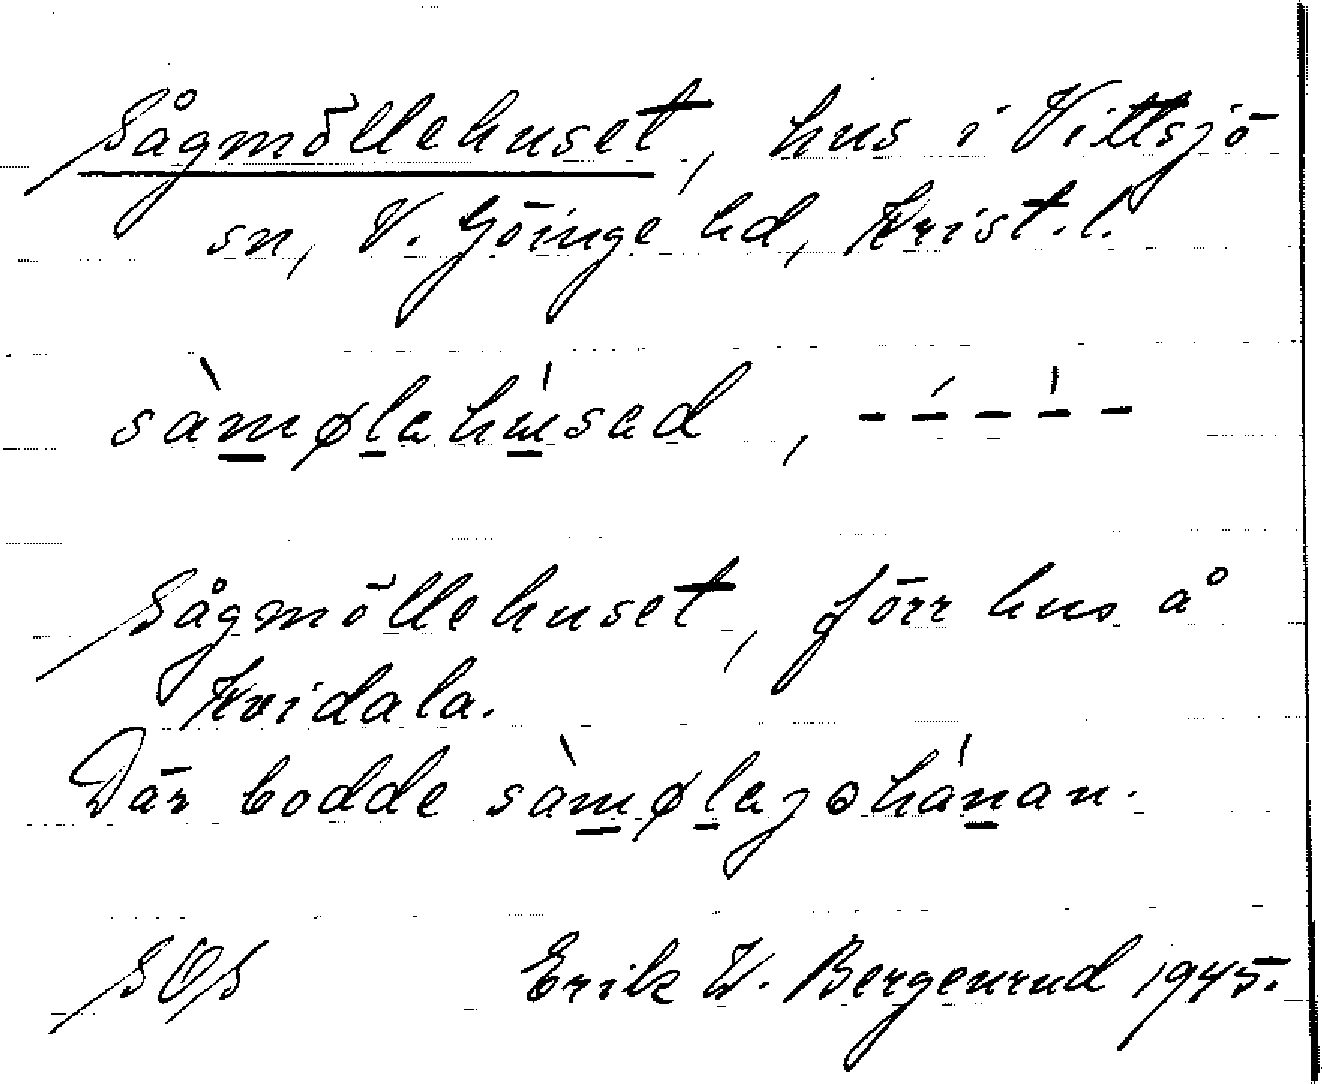 Sågmöllehuset, hus i Vittsjö
sn, V. Göinge hd, Krist. l.
sàmølehúsed, – – – – –
Sågmöllehuset, förr hus å
Kvidala.
Där bodde sàmølejohánan.
SOS Erik W. Bergenrud 1945.